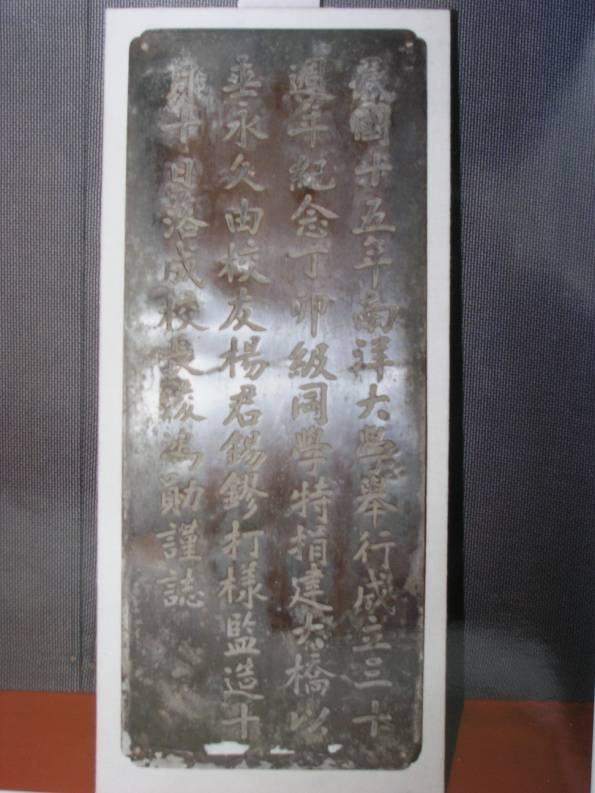 民國十五年南洋大學舉行成立三十
週年紀念丁卯級同學特捐建大橋以
垂永久由校友楊君錫鏐打樣監造十
月十日落成校長淩鴻勛謹誌